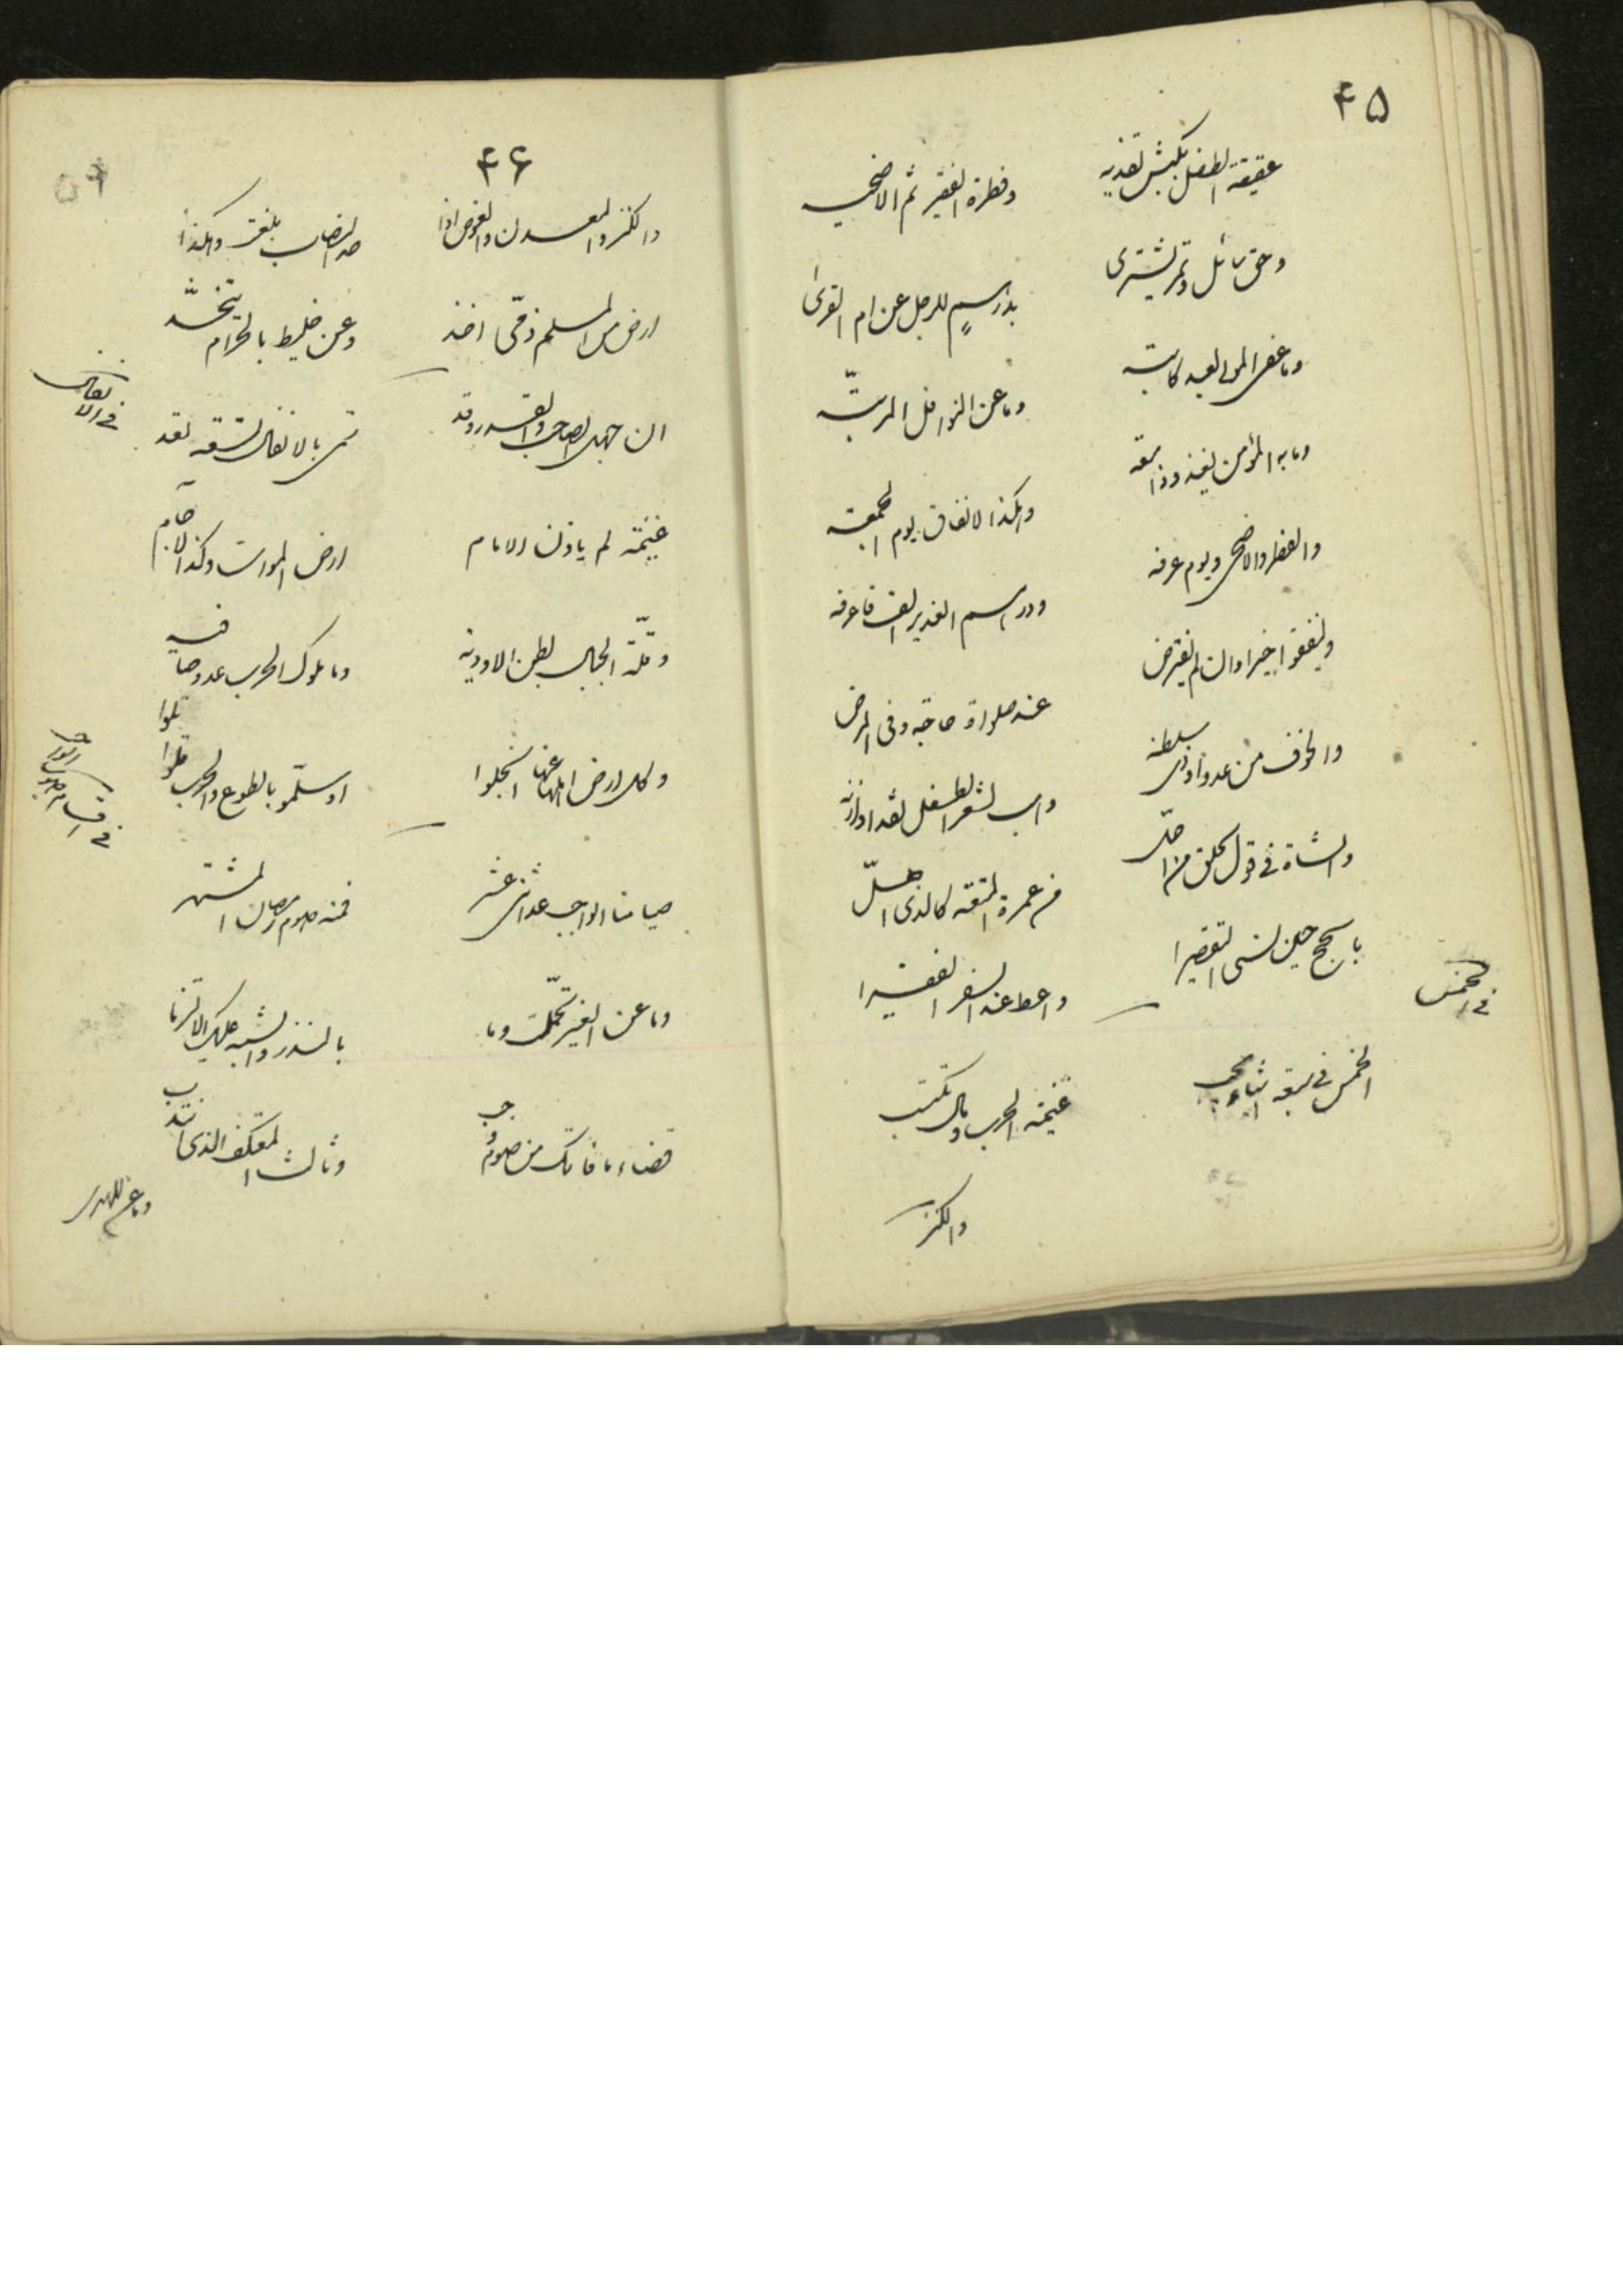 ۴۵
عقيقة الطفل بكبش تفديه
وفطرة الفقير ثم الاضحيه
وحق سائل وتمر يشترى
بدرهم للرجل عن ام القرى
وما عفى المولى لعبد كاتبه
وما عن النوافل المرتبه
وما به المؤمن
وهكذا الانفاق يوم الجمعة
والفطر والاضحى ويوم عرفه
ودرهم الغدير الف فاعرفه
ولينفقوا خيرا وان لم يفترض
عند صلوة حاجة وفى المرض
والخوف من عدو او ذى سلطنه
واهب لشعر الطفل نقدا وازنه
والشاة فى قول لحلق من احل
من عمرة المتعة كالذى اهل
بالحج حين نسى التقصيرا
واعط عند السفر الفقيرا
فى الخمس
الخمس فى سبعة اشياء يجب
غنيمة الحرب ومال تكتسب
والكنز
۴۶
والكنز والمعدن والغوص اذا
حد النصاب بلغت وهكذا
ارض من المسلم ذمى اخذ
وعن خليط بالحرام
فى الانفال
ان جهل الصاحب والقدر وقد
سمى بالانفال لتسعة تعد
غنيمة لم ياذن الامام
ارض الموات وكذا الآجام
وقلة الجبال بطن الاوديه
وما ملوك الحرب عدوا صافيه
وكل ارض اهلها عنها انجلوا
او سلموا بالطوع والحرب قلوا
فى اقسام الصوم الواجب
صيامنا الواجب عدا اثنى عشر
فمنه صوم رمضان المشتهر
وما عن الغير تحملت وما
بالنذر والشبه عليك الزما
قضاء ما فاتك من صوم وجب
وثالث المعتكف الذى انتدب